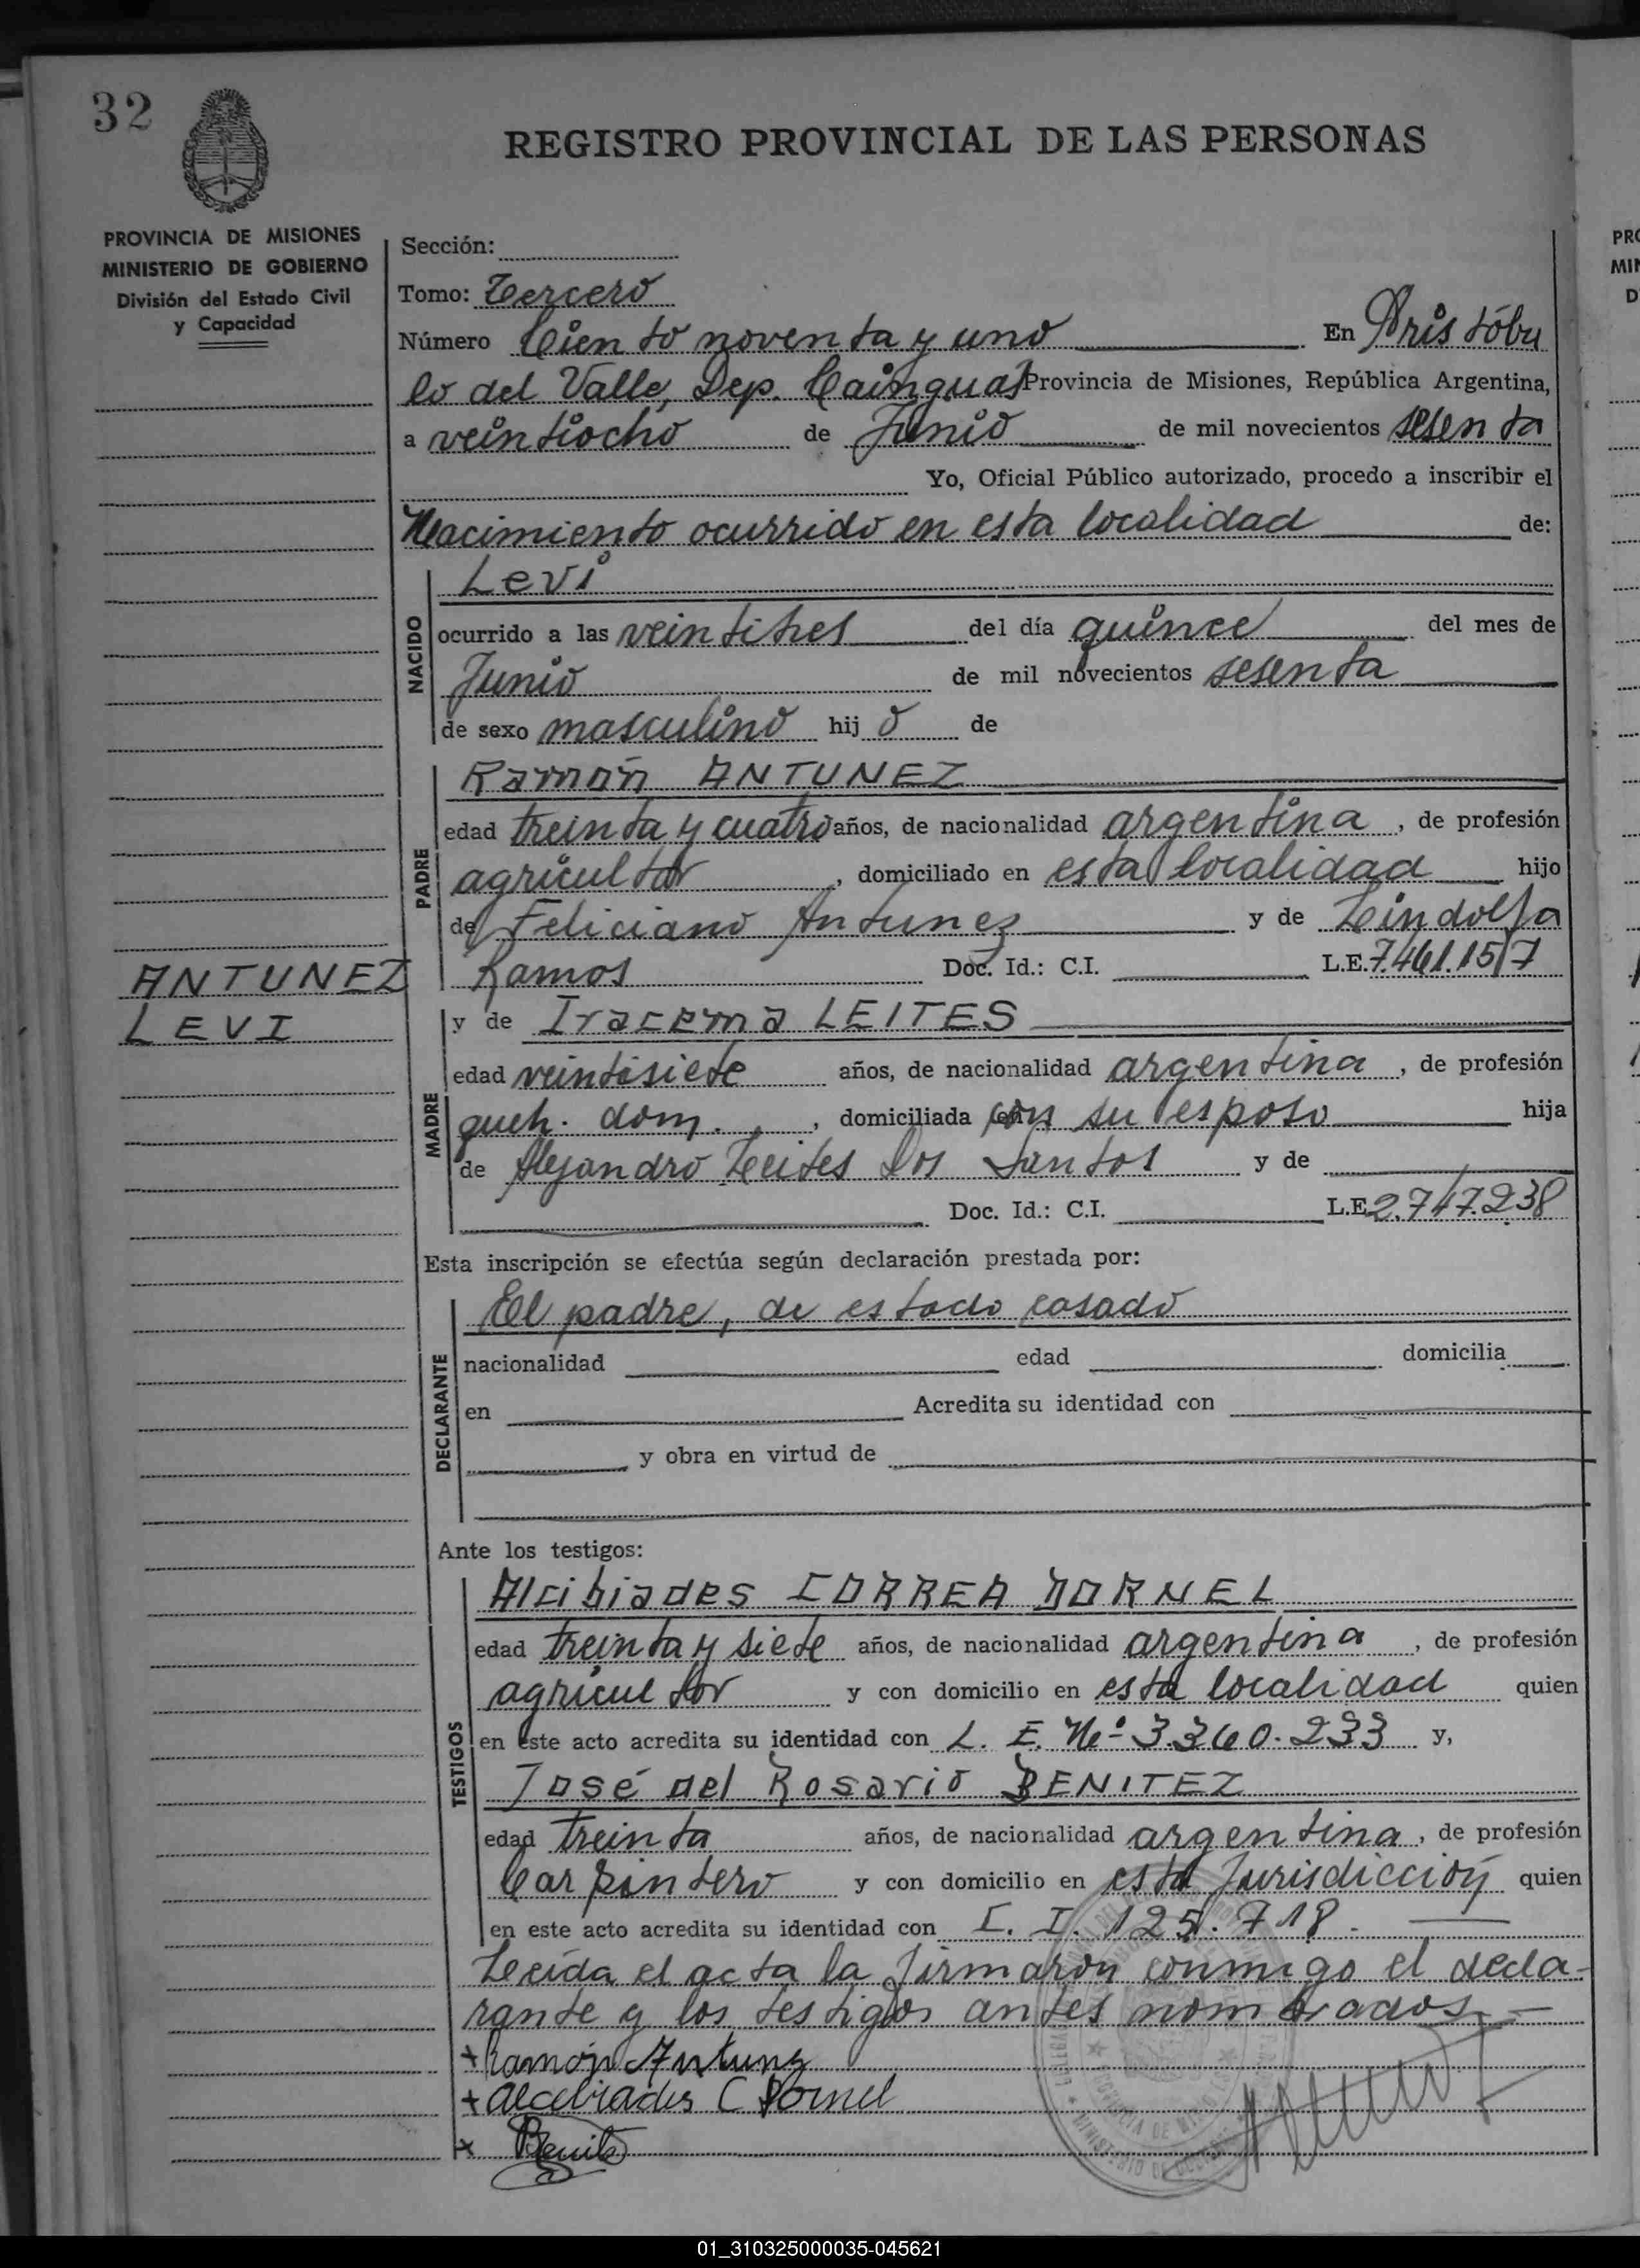 32
REGISTRO PROVINCIAL DE LAS PERSONAS
PROVINCIA DE MISIONES
MINISTERIO DE GOBIERNO
División del Estado Civil
y Capacidad
Sección:
Tomo: Tercero
Número Ciento noventa y uno En Aristóbu
lo del Valle, Dep. Cainguas Provincia de Misiones, República Argentina,
a veintiocho de Junio de mil novecientos sesenta
Yo, Oficial Público autorizado, procedo a inscribir el
Nacimiento ocurrido en esta localidad de:
NACIDO
Levi
ocurrido a las veintitres del día quince del mes de
Junio de mil novecientos sesenta
de sexo masculino hij o de
PADRE
Ramón ANTUNEZ
edad treinta y cuatro años, de nacionalidad argentina, de profesión
agricultor, domiciliado en esta localidad hijo
de Feliciano Antunez y de Lindolfa
Ramos Doc. Id.: C.I. L.E. 7.461.157
ANTUNEZ
LEVI
MADRE
y de Iracema LEITES
edad veintisiete años, de nacionalidad argentina, de profesión
queh. dom., domiciliada con su esposo hija
de Alejandro Leites Dos Santos y de
Doc. Id.: C.I. L.E. 2.747.238
Esta inscripción se efectúa según declaración prestada por:
DECLARANTE
El padre, de estado casado
nacionalidad edad domicilia
en Acredita su identidad con
y obra en virtud de
Ante los testigos:
TESTIGOS
Alcibiades CORREA DORNEL
edad treinta y siete años, de nacionalidad argentina, de profesión
agricultor y con domicilio en esta localidad quien
en este acto acredita su identidad con L. E. Nº 3.360.233 y,
José del Rosario BENITEZ
edad treinta años, de nacionalidad argentina, de profesión
Carpintero y con domicilio en esta Jurisdicción quien
en este acto acredita su identidad con C. I. 125.718.
Leída el acta la firmaron conmigo el decla-
rante y los testigos antes nombrados.-
+ Ramón Antunz
+ Alcebiades C Dornel
x Benitz
01_310325000035-045621